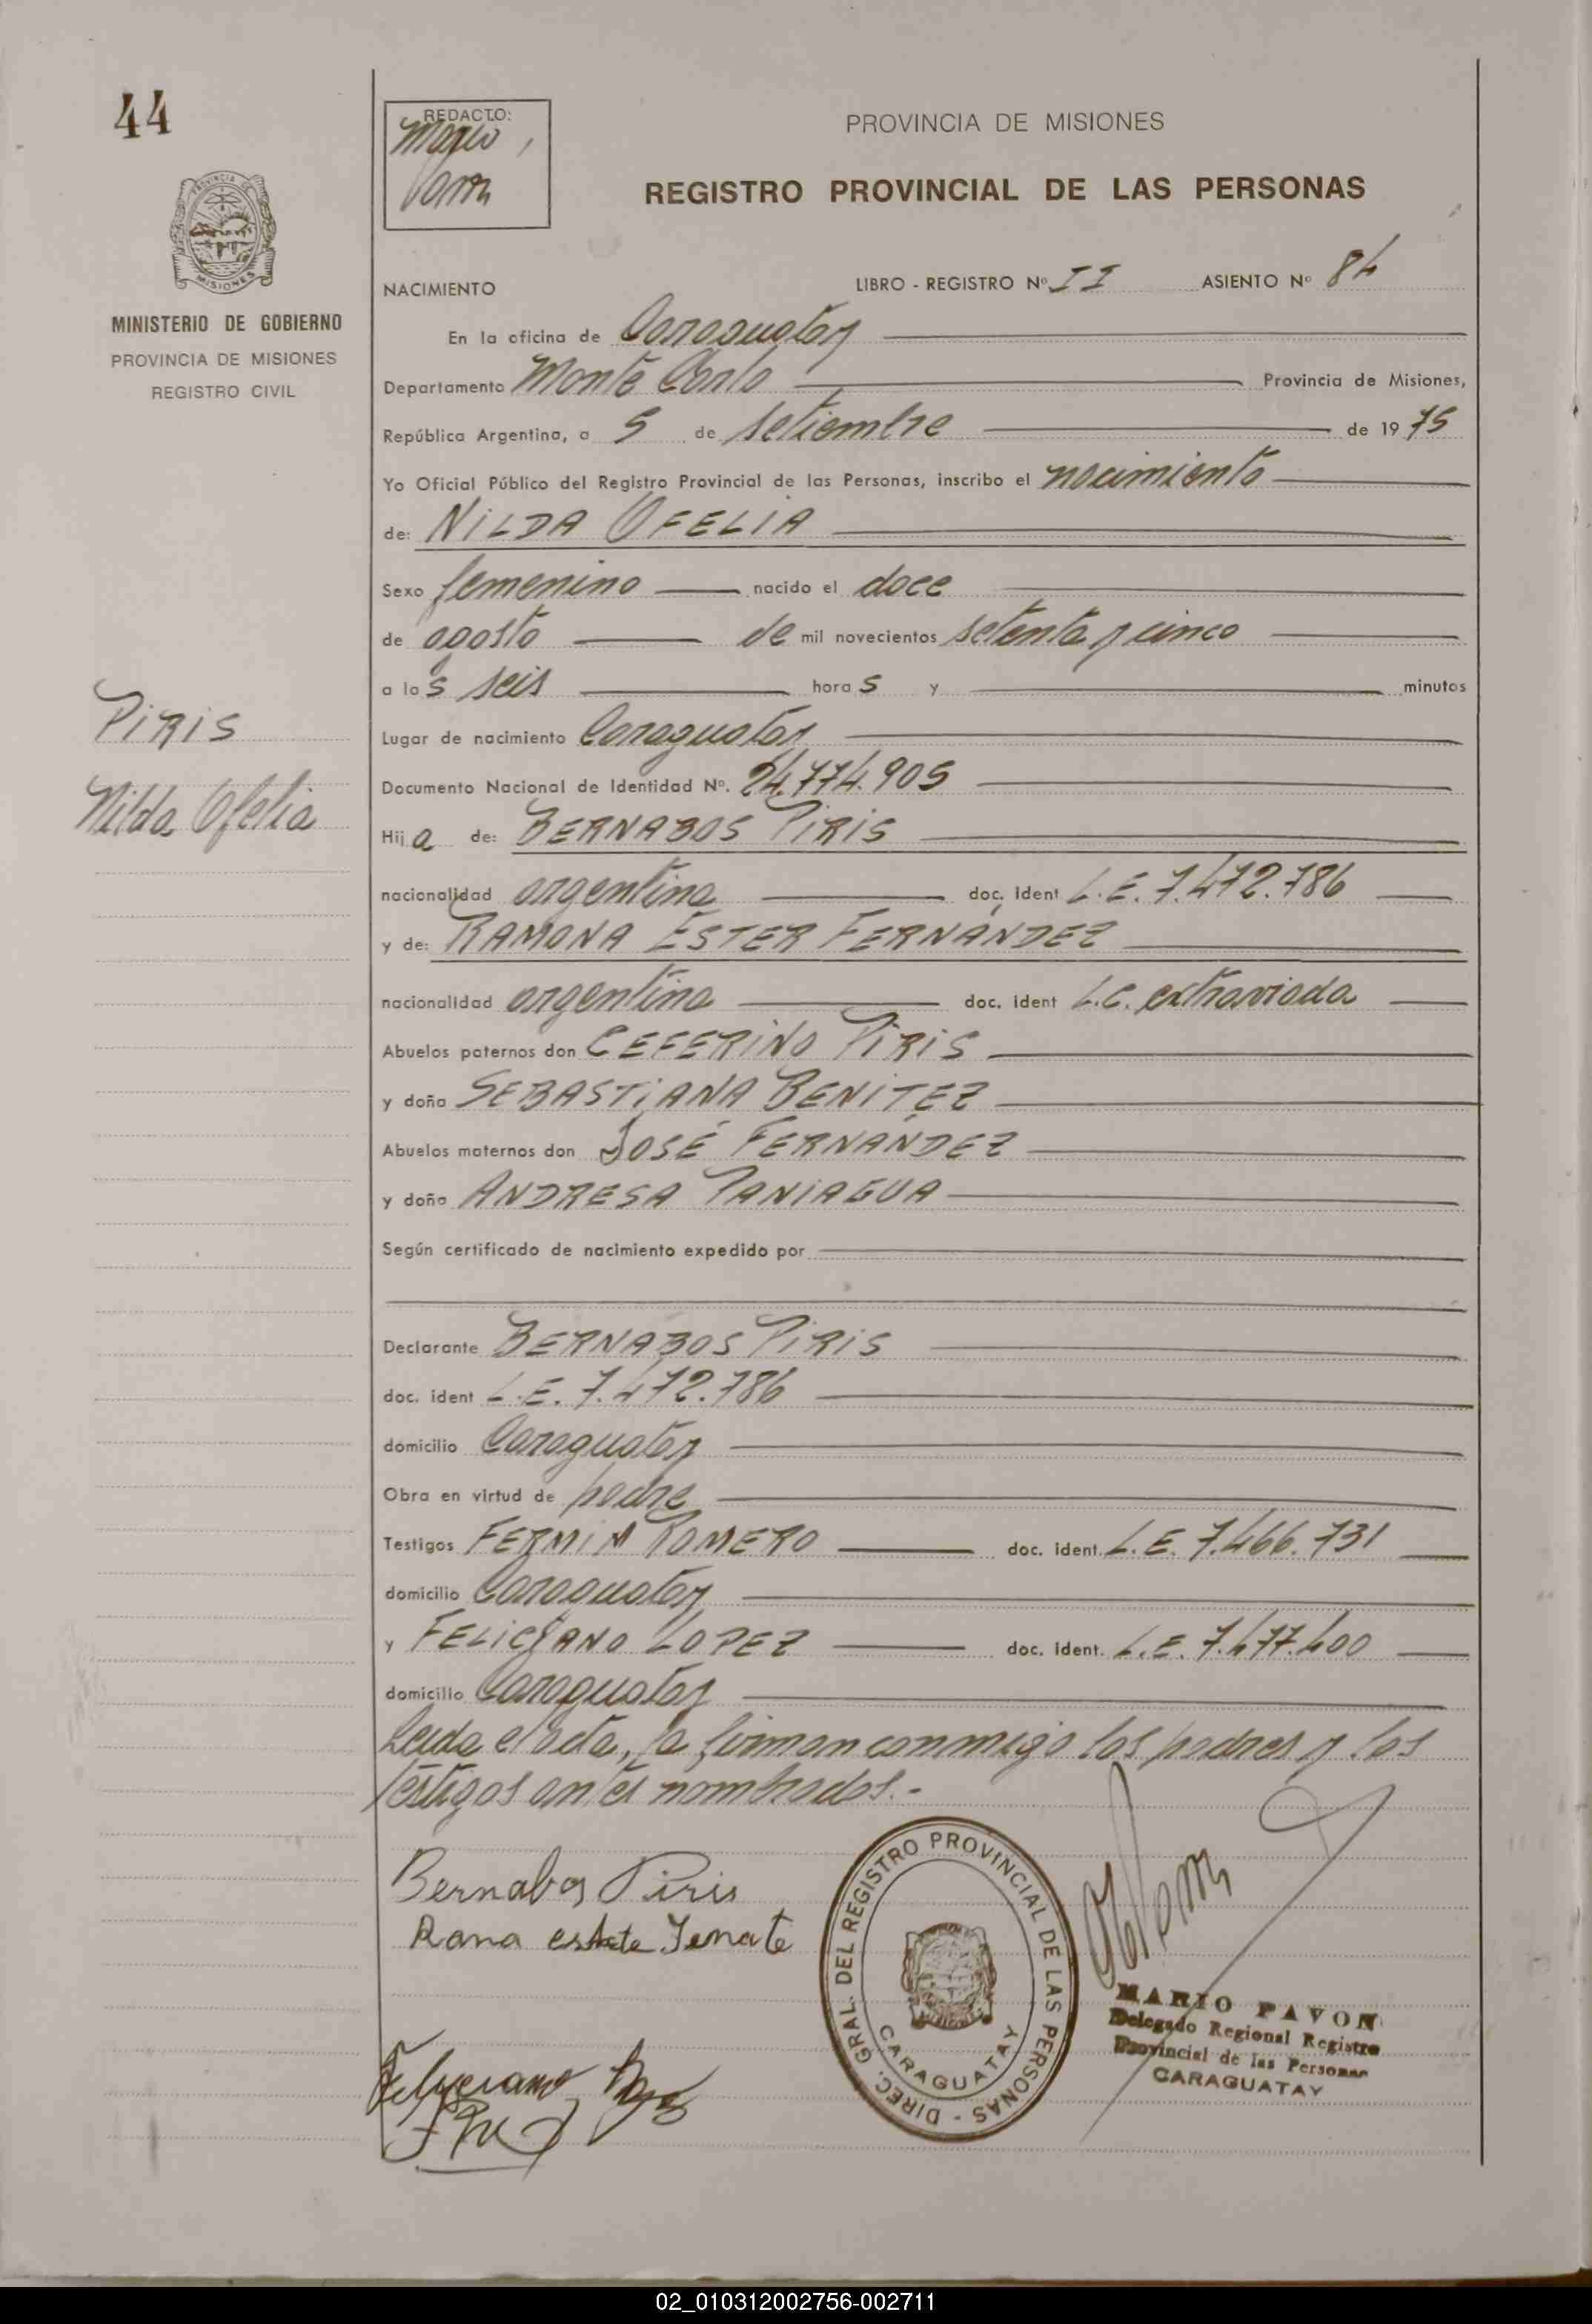 44
REDACTO:
Mario
Pavon
PROVINCIA DE MISIONES
REGISTRO PROVINCIAL DE LAS PERSONAS
PROVINCIA DE
MISIONES
MINISTERIO DE GOBIERNO
PROVINCIA DE MISIONES
REGISTRO CIVIL
NACIMIENTO LIBRO - REGISTRO Nº II ASIENTO Nº 84
En la oficina de Caraguatay
Departamento Monte Carlo Provincia de Misiones,
República Argentina, a 5 de setiembre de 1975
Yo Oficial Público del Registro Provincial de las Personas, inscribo el nacimiento
de: NILDA OFELIA
Sexo femenino nacido el doce
de agosto de mil novecientos setenta y cinco
a las seis horas y minutos
PIRIS
Nilda Ofelia
Lugar de nacimiento Caraguatay
Documento Nacional de Identidad Nº. 24.774.905
Hija de: BERNABOS PIRIS
nacionalidad argentina doc. ident L.E. 7.472.786
y de: RAMONA ESTER FERNÁNDEZ
nacionalidad argentina doc. ident L.C. extraviada
Abuelos paternos don CEFERINO PIRIS
y doña SEBASTIANA BENITEZ
Abuelos maternos don JOSÉ FERNÁNDEZ
y doña ANDRESA PANIAGUA
Según certificado de nacimiento expedido por
Declarante BERNABOS PIRIS
doc. ident L.E. 7.472.786
domicilio Caraguatay
Obra en virtud de padre
Testigos FERMIN ROMERO doc. ident. L.E. 7.466.731
domicilio Caraguatay
y FELICIANO LOPEZ doc. ident. L.E. 7.477.400
domicilio Caraguatay
Leida el acta, la firman conmigo los padres y los
testigos antes nombrados.-
Bernabos Piris
Rana Fenate
DIREC. GRAL. DEL REGISTRO PROVINCIAL DE LAS PERSONAS -
CARAGUATAY
MARIO PAVON
Delegado Regional Registro
Provincial de las Personas
CARAGUATAY
02_010312002756-002711